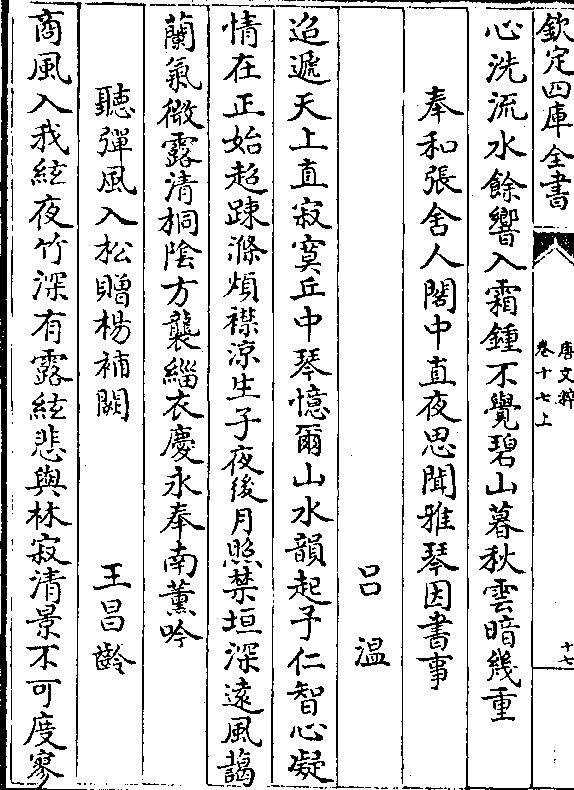 欽定四庫全書
唐文粹
卷十七上
十七
心洗流水餘響入霜鍾不覺碧山暮秋雲暗幾重
奉和張舍人閣中直夜思聞雅琴因書事
呂溫
迢遞天上直寂寞丘中琴憶爾山水韻起予仁智心凝
情在正始超踈滌煩襟涼生子夜後月照禁垣深遠風藹
蘭氣微露清桐陰方襲緇衣慶永奉南薰吟
聽彈風入松贈楊補闕
王昌齡
商風入我絃夜竹深有露絃悲與林寂清景不可度寥